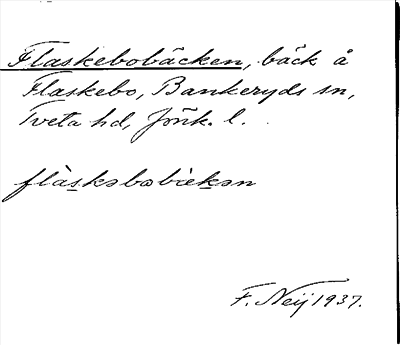 Flaskebobäcken, bäck å
Flaskebo, Bankeryds sn,
Tveta hd, Jönk. l.
flàskəbobɛ̀kən
F. Neij 1937.